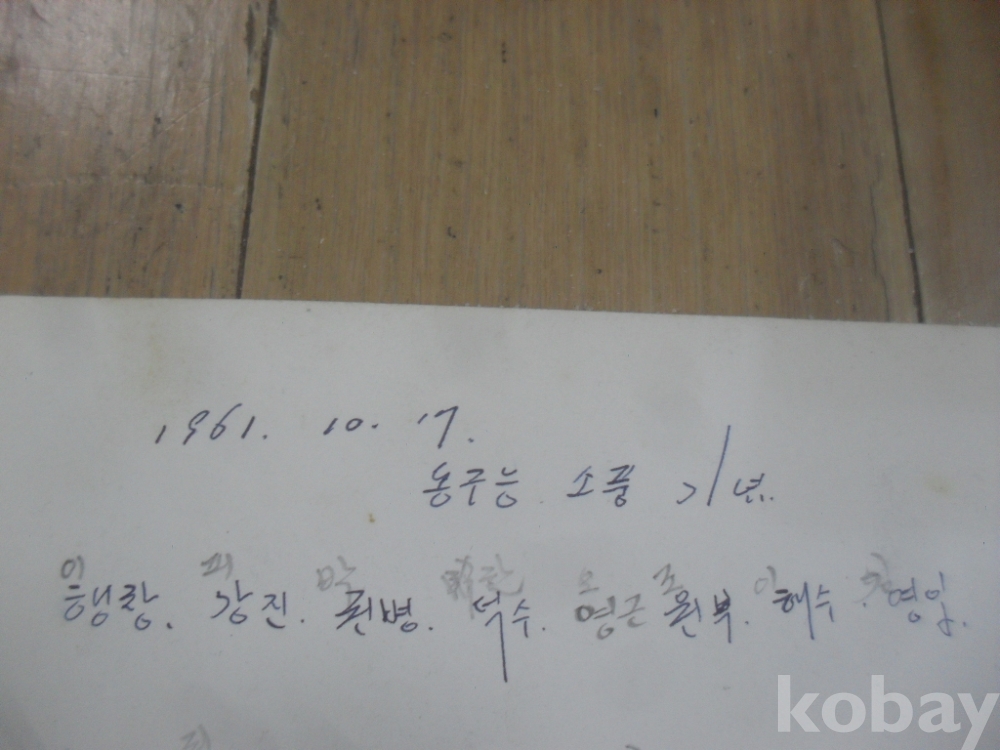 1961. 10. 17.
동구능 소풍 기념.
이 피 박 한 오 조 이
행랑. 강진. 원병. 석수. 영근 원부. 해수. 영임.
kobay